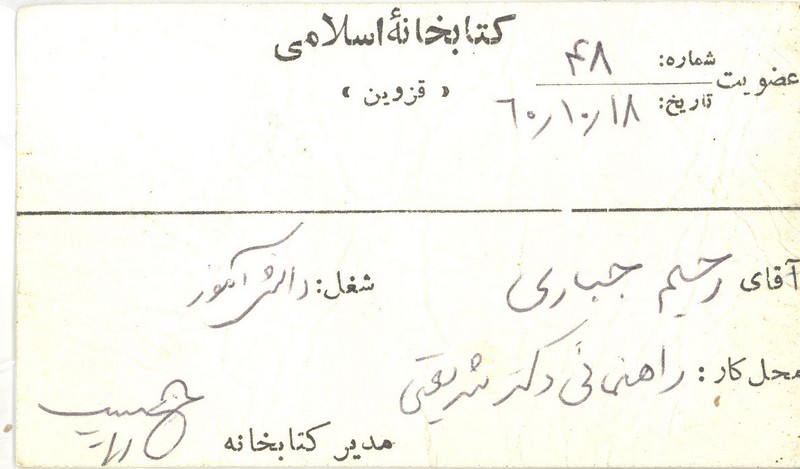 کتابخانهٔ اسلامی
« قزوین »
عضویت شماره: ۴۸
تاریخ: ۶۰/۱۰/۱۸
آقای رحیم جباری شغل: دانش آموز
محل کار: راهنمائی دکتر شریعتی
مدیر کتابخانه